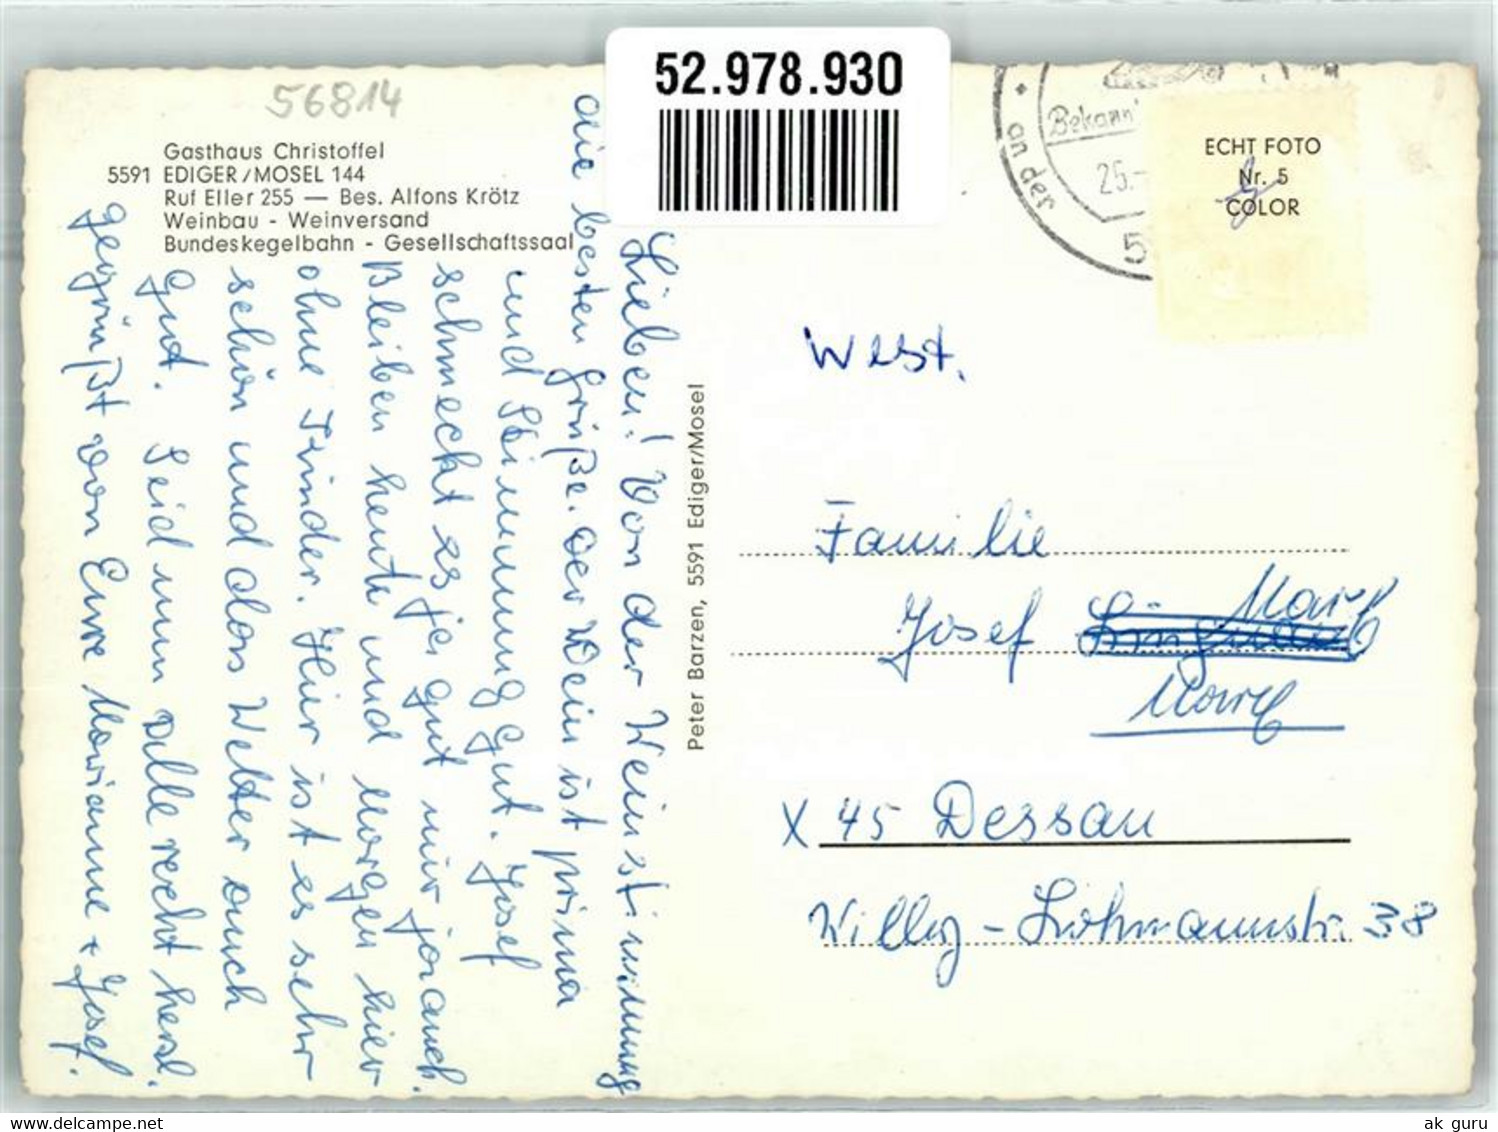 56814
52.978.930
Gasthaus Christoffel
5591 EDIGER/MOSEL 144
Ruf Eller 255 — Bes. Alfons Krötz
Weinbau - Weinversand
Bundeskegelbahn - Gesellschaftssaal
Lieben! Von der Weinstimmung
die besten Grüße. Der Wein ist prima
und Stimmung gut. Josef
schmeckt es ja gut mir ja auch.
Bleiben heute und morgen hier
ohne Kinder. Hier ist es sehr
schön und das Wetter auch
gut. Seid nun alle recht herzl.
gegrüßt von Eure Marianne + Josef.
Peter Barzen, 5591 Ediger/Mosel
an der
Bekann
25.-
5
ECHT FOTO
Nr. 5
COLOR
West.
Familie
Josef
X 45 Dessau
Willy-Lohmannstr. 38
ak guru